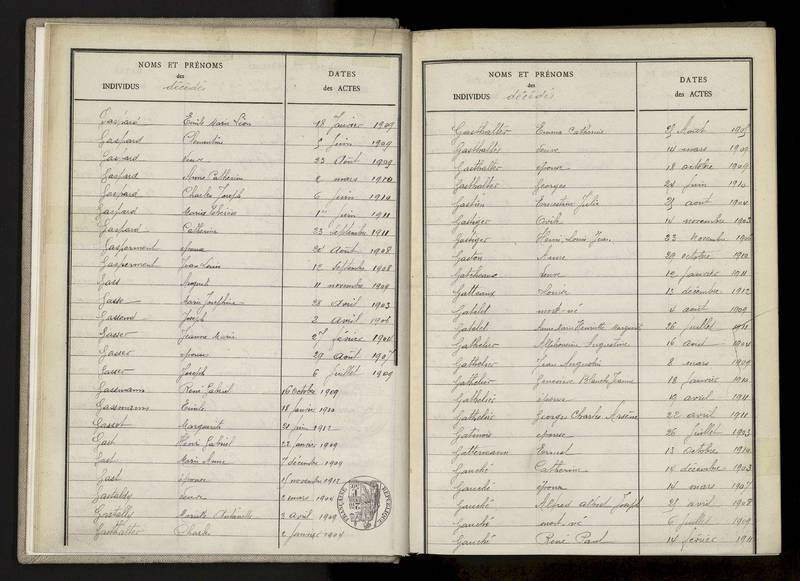 NOMS ET PRÉNOMS
des
INDIVIDUS décédés
DATES
des ACTES
Gaspard Emile Marie Léon 18 Janvier 1909
Gaspard Clementine 5 Juin 1909
Gaspard Veuve 23 Août 1909
Gaspard Anne Catherine 2 mars 1910
Gaspard Charles Joseph 6 Juin 1910
Gaspard Marie 1er Juin 1911
Gaspard Catherine 23 Septembre 1911
Gasperment epouse 24 Août 1908
Gasperment Jean Louis 12 Septembre 1908
Gass August 11 novembre 1904
Gasse Marie Joséphine 28 Avril 1903
Gassend Joseph 2 avril 1906
Gasser Jeanne Marie 27 février 1904
Gasser epouse 29 Août 1907
Gasser Joseph 6 Juillet 1909
Gassmann René Gabriel 16 Octobre 1909
Gassmann Emile 18 Janvier 1910
Gassot Marguerite 21 Juin 1912
Gast Henri Gabriel 22 Janvier 1909
Gast Marie Anne 7 décembre 1909
Gast épouse novembre 1912
Gastaldy Veuve 2 mars 1904
Gastally Mariette Antoinette 2 Avril 1909
Gasthalter Charles 2 Janvier 1904
RÉPUBLIQUE FRANÇAISE
NOMS ET PRÉNOMS
des
INDIVIDUS décédés
DATES
des ACTES
Gasthalter Emma Catherine 25 March
Gasthalter Veuve 14 mars 1909
Gasthalter epouse 18 octobre 1909
Gasthalter Georges 24 Juin 1910
Gastien Ernestine Julie 25 aout 1904
Gastiger 14 novembre 1903
Gastiger Henri Louis Jean 23 Novembre
Gaston Anne 29 octobre 1910
Gatcheaux Veuve 12 Janvier 1911
Gatteaux Louise 13 décembre 1912
Gatelet mort-né 4 août 1909
Gatelet Henriette Marguerite 26 Juillet 1911
Gathelier Alphonsine Augustine 16 Août 1904
Gathelier Jean Augustin 8 mars 1909
Gathelier Genevieve Blanche Jeanne 18 Janvier 1910
Gathelier epouse 19 avril 1911
Gathelier Georges Charles Arsène 22 avril 1911
Gatinois epouse 26 Juillet 1903
Gattermann Ernest 13 octobre 1910
Gauché Catherine 14 décembre 1903
Gauché épouse 14 mars 1907
Gauché Alfred Albert Joseph 25 avril 1908
Gauché mort-né 6 Juillet 1909
Gauché René Paul 14 février 1911